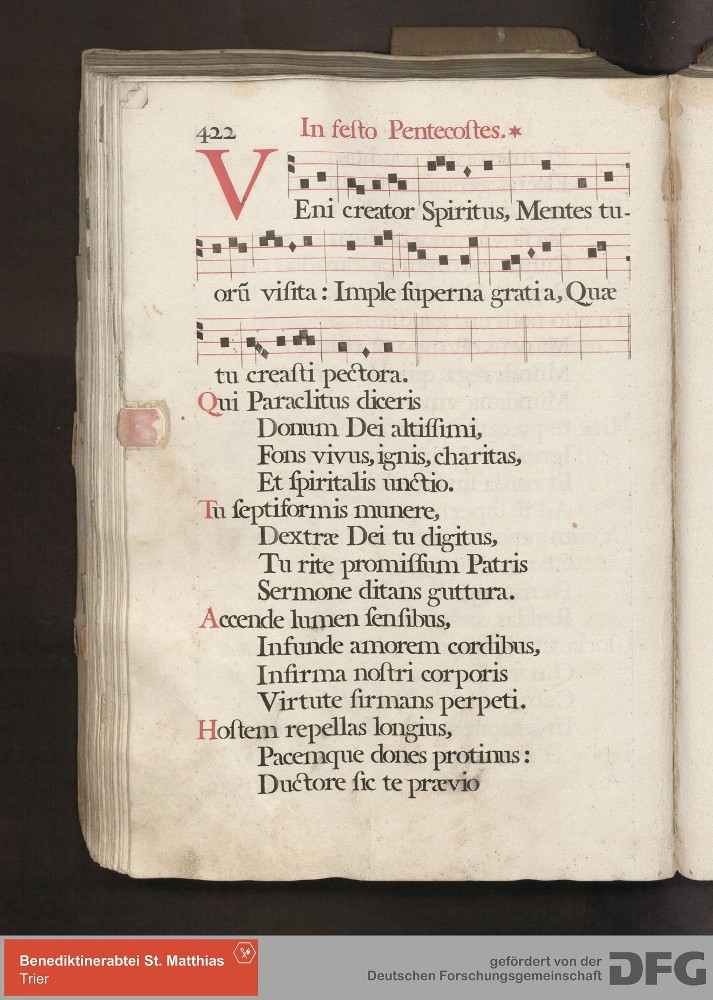 422 In festo Pentecostes.*
VEni creator Spiritus, Mentes tu-
orũ visita: Imple superna gratia, Quæ
tu creasti pectora.
Qui Paraclitus diceris
Donum Dei altissimi,
Fons vivus, ignis, charitas,
Et spiritalis unctio.
Tu septiformis munere,
Dextræ Dei tu digitus,
Tu rite promissum Patris
Sermone ditans guttura.
Accende lumen sensibus,
Infunde amorem cordibus,
Infirma nostri corporis
Virtute firmans perpeti.
Hostem repellas longius,
Pacemque dones protinus:
Ductore sic te prævio
Benediktinerabtei St. Matthias
Trier
gefördert von der
Deutschen Forschungsgemeinschaft
DFG